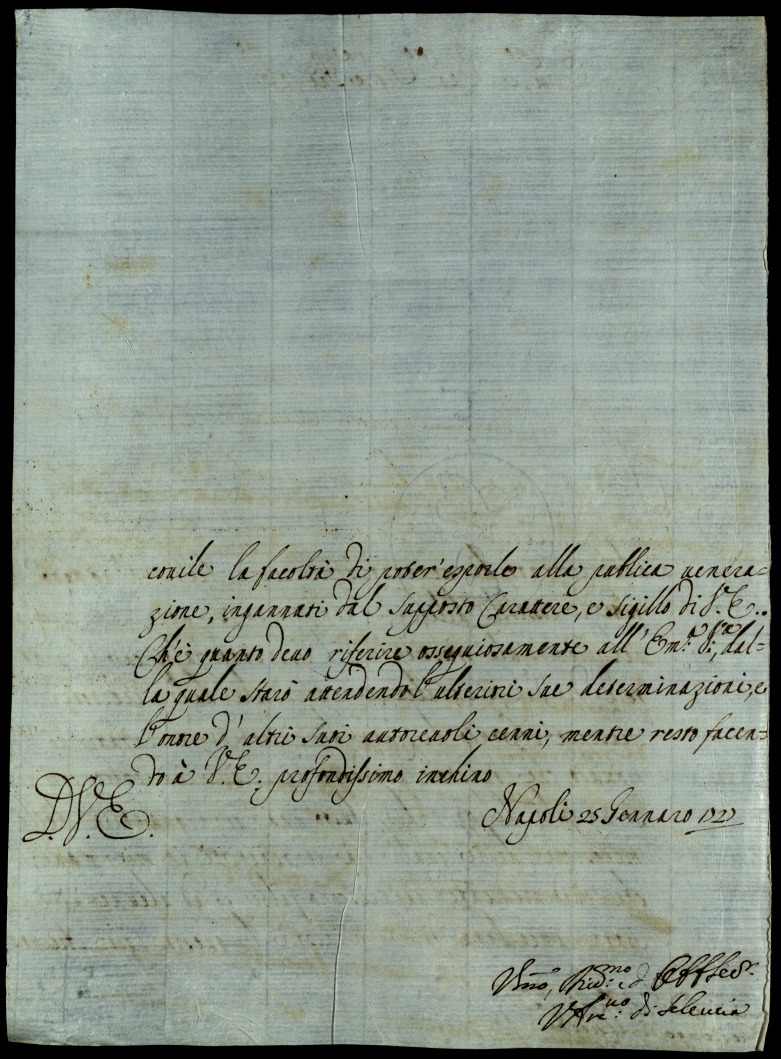 la facoltà di poter' esporle alla publica venera=
zione, ingannati dal supposto Carattere, e sigillo di V.E..
Ch'è quanto devo riferire ossequiosamente all' Em.ª V.ª, dal=
la quale starò attendendo l'ulteriori sue determinazioni, e
l'onore d' altri suoi autorevoli cenni, mentre resto facen=
do à V.E. profondissimo inchino
D.V.E.
Napoli 25 Gennaro 1727
Um̃o, Dev.mo ed Obb
L'Arc.vo di Seleucia